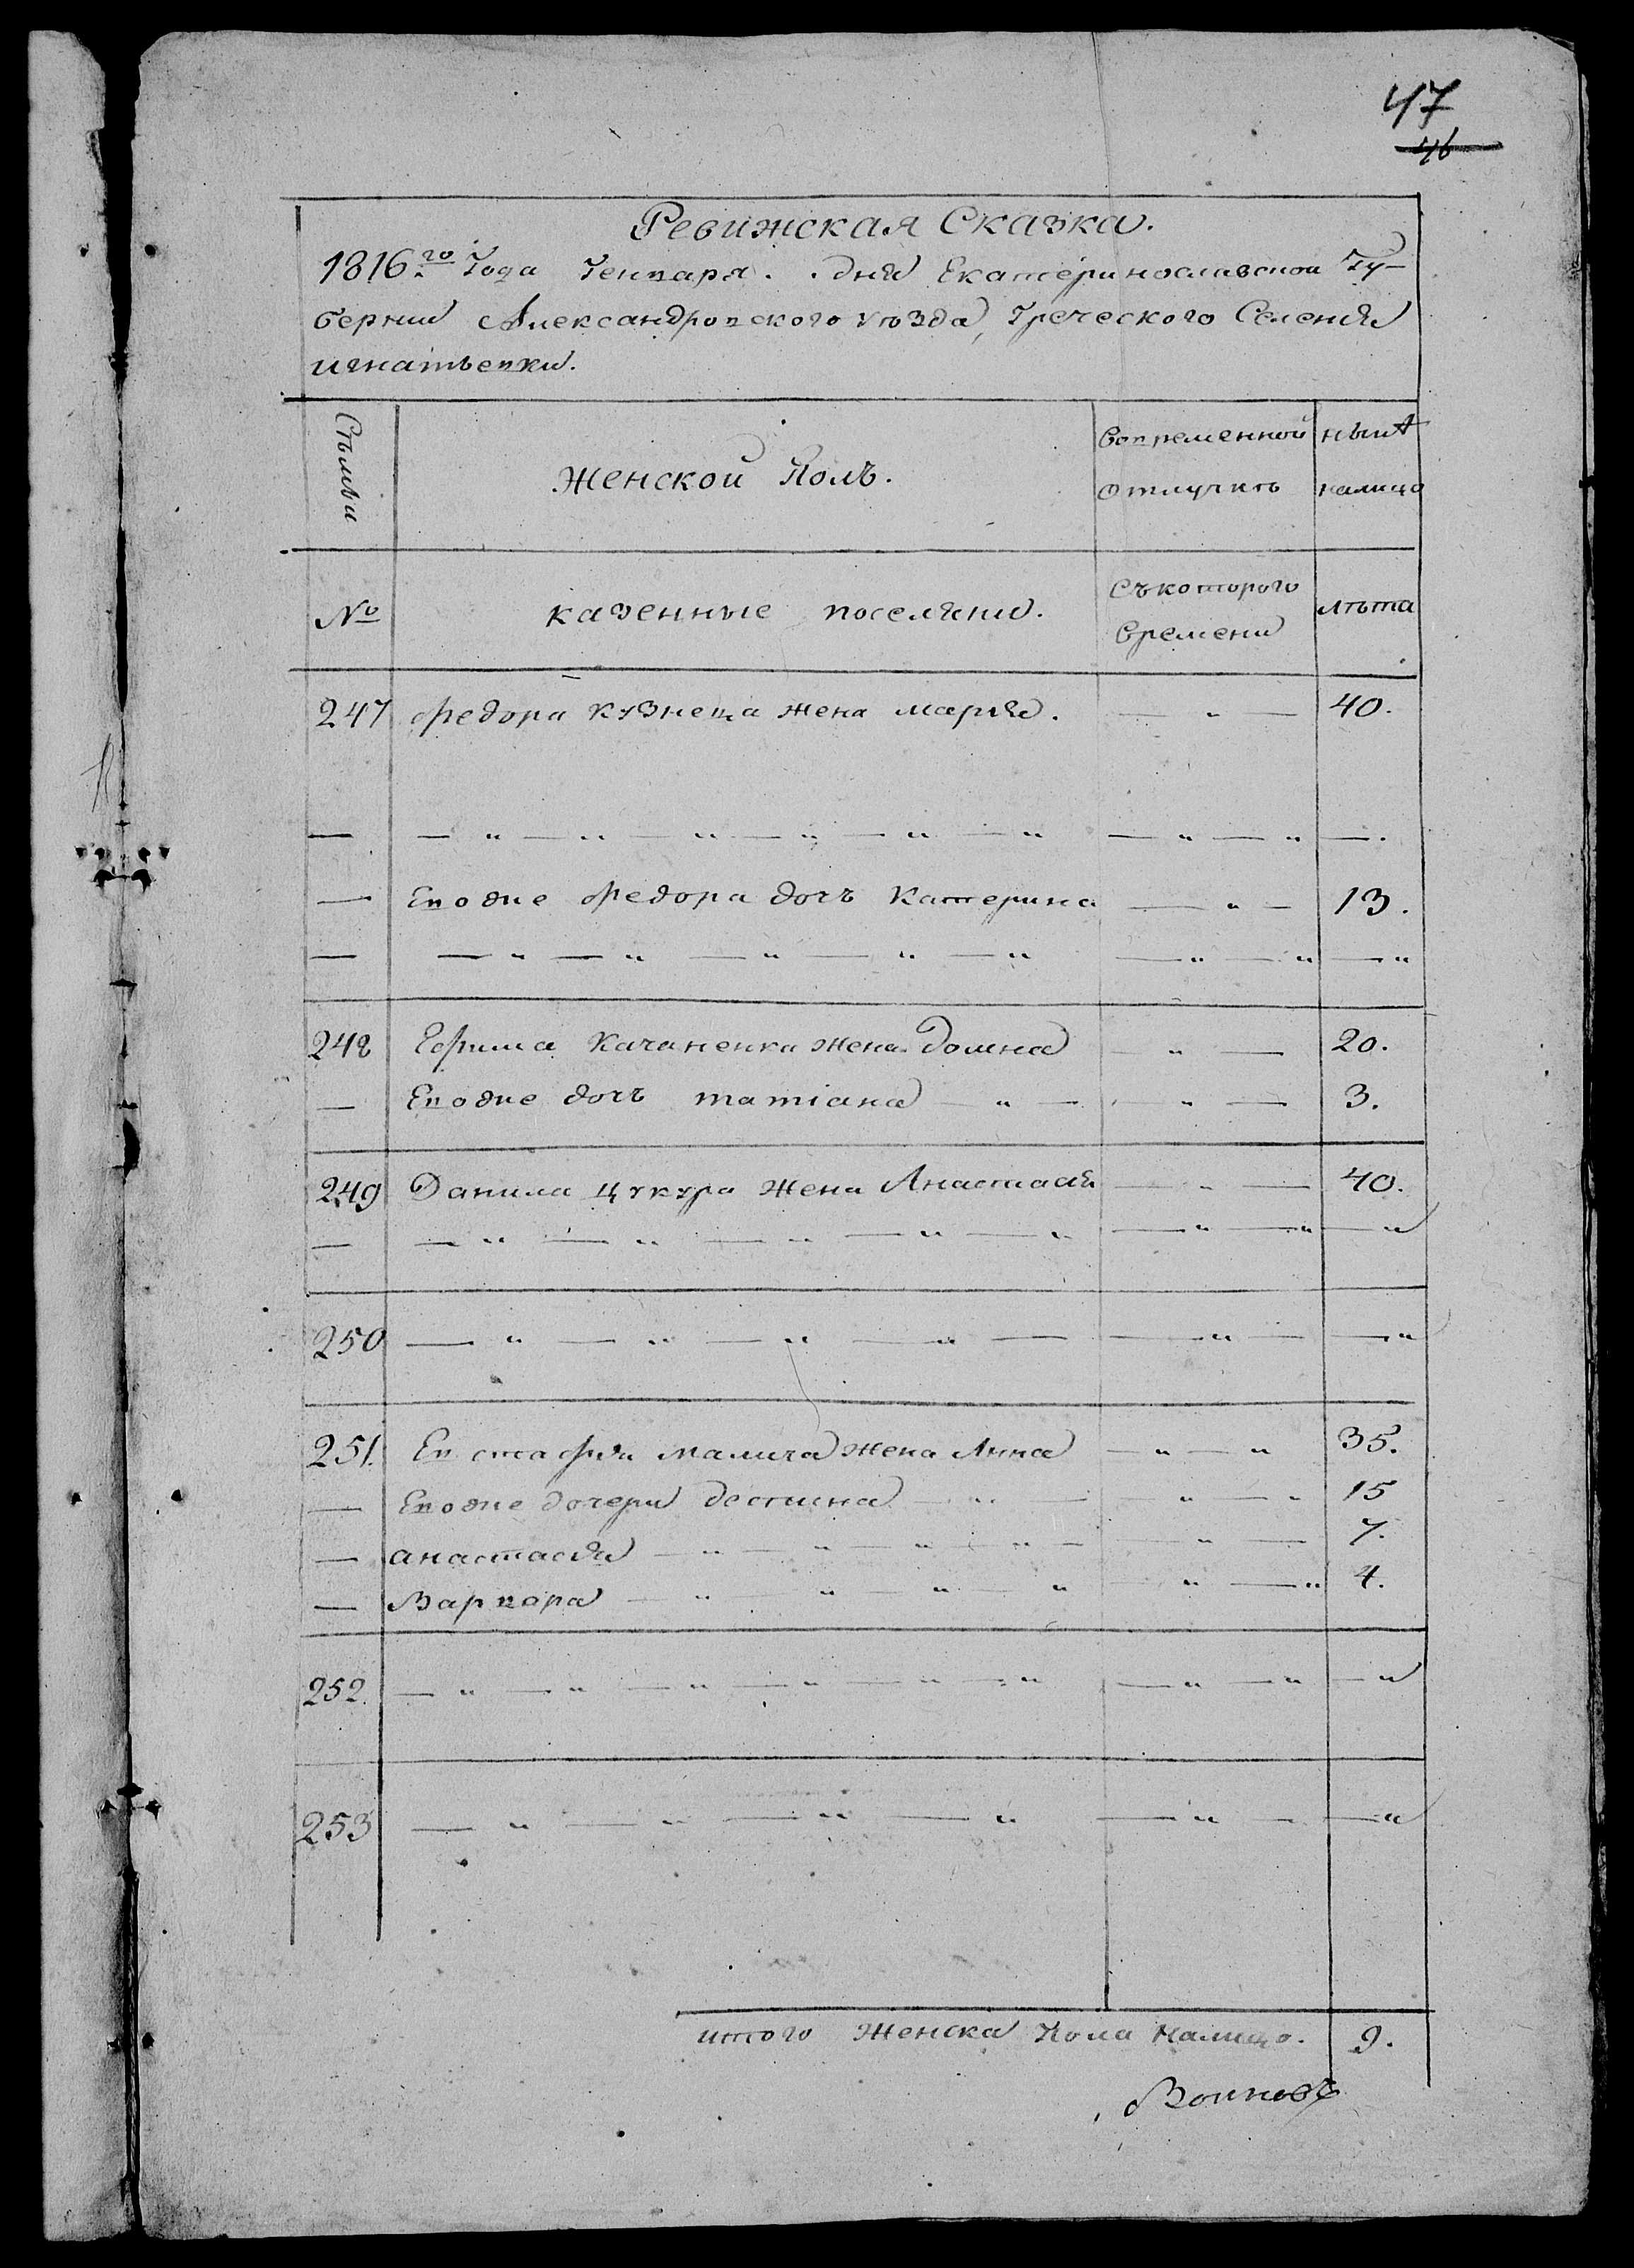 47
46
Ревижская Сказка.
1816го Года Генваря. . дня Екатеринославской Гу-
бернии Александровского уѣзда, Греческого Селения
игнатьевки.
Сѣмьи
Женской Полъ.
вовременной отлучкѣ
нынѣ налицо
№
казенные поселяни.
Съкоторого времени
лѣта
247 Федора Кузнеца жена марія. — „ — 40.
— — „ — „ — „ — „ — „ — „ — „ — „ —.
— Евоже Федора дочь Катерина — „ — 13.
— — „ — „ — „ — „ — „ — „ — „ — „
248 Ефима Качаненка жена Домна — „ — 20.
— Евоже дочь татіана — „ — „ — 3.
249 Данила цукура жена Анастасія — „ — 40.
— — „ — „ — „ — „ — „ — „ — „ — „
250 — „ — „ — „ — „ — — „ — — „
251. Евстафія малича жена Анна — „ — „ 35.
— Евоже дочери деспина — „ — „ — „ 15
— анастасія — „ — „ — „ — „ — — „ — 7.
— Варвара — „ — „ — „ — „ — „ — „ 4.
252. — „ — „ — „ — „ — „ — „ — „ — „ — „
253 — „ — „ — „ — „ — „ — — „
итого женска пола налицо. 9.
Воиновъ